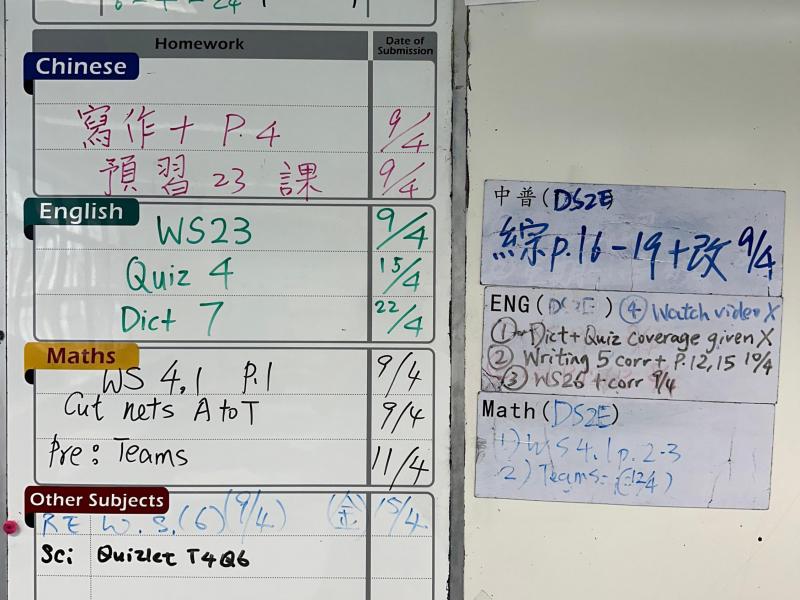 6 - 4 - 24
Homework Date of Submission
Chinese
寫作 + P.4 9/4
預習 23 課 9/4
English
WS23 9/4
Quiz 4 15/4
Dict 7 22/4
Maths
WS 4.1 P.1 9/4
Cut nets A to T 9/4
Pre: Teams 11/4
Other Subjects
RE W.S.(6) (9/4) (金) 15/4
Sc: Quizlet T4Q6
中普(DS2E)
綜p.16-19+改 9/4
ENG(DS2E) ④ Watch video X
① Dict+Quiz coverage given X
② Writing 5 corr + P.12,15 10/4
③ WS25 + corr 9/4
Math(DS2E)
1) WS 4.1 p.2-3
2) Teams (12/4)